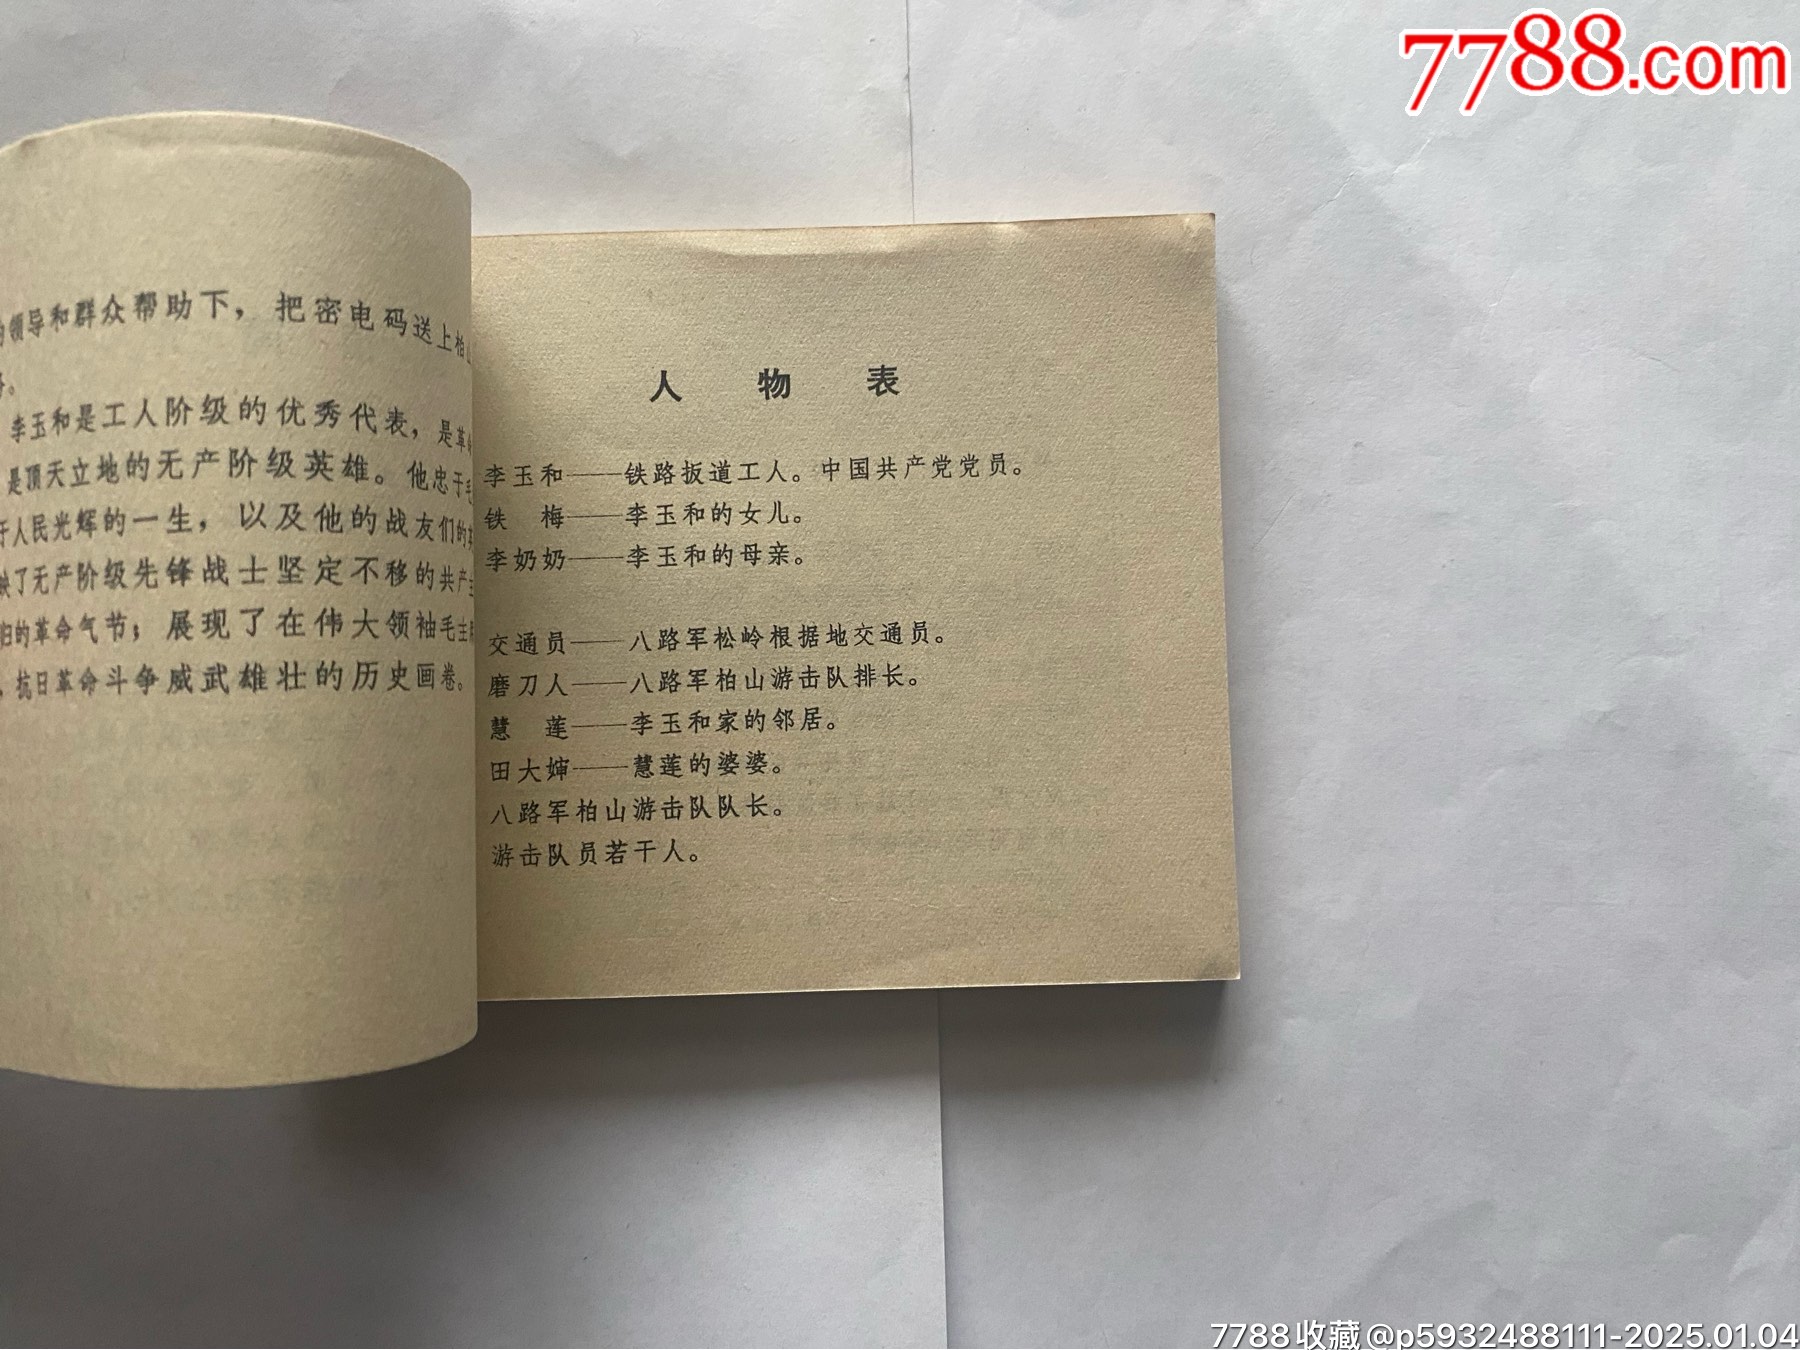 7788.com
领导和群众帮助下，把密电码送上柏
。
李玉和是工人阶级的优秀代表，是革
是顶天立地的无产阶级英雄。他忠于毛
于人民光辉的一生，以及他的战友们的
映了无产阶级先锋战士坚定不移的共产
归的革命气节；展现了在伟大领袖毛主
，抗日革命斗争威武雄壮的历史画卷。
人 物 表
李玉和——铁路扳道工人。中国共产党党员。
铁 梅——李玉和的女儿。
李奶奶——李玉和的母亲。
交通员——八路军松岭根据地交通员。
磨刀人——八路军柏山游击队排长。
慧 莲——李玉和家的邻居。
田大婶——慧莲的婆婆。
八路军柏山游击队队长。
游击队员若干人。
7788收藏@p5932488111-2025.01.04